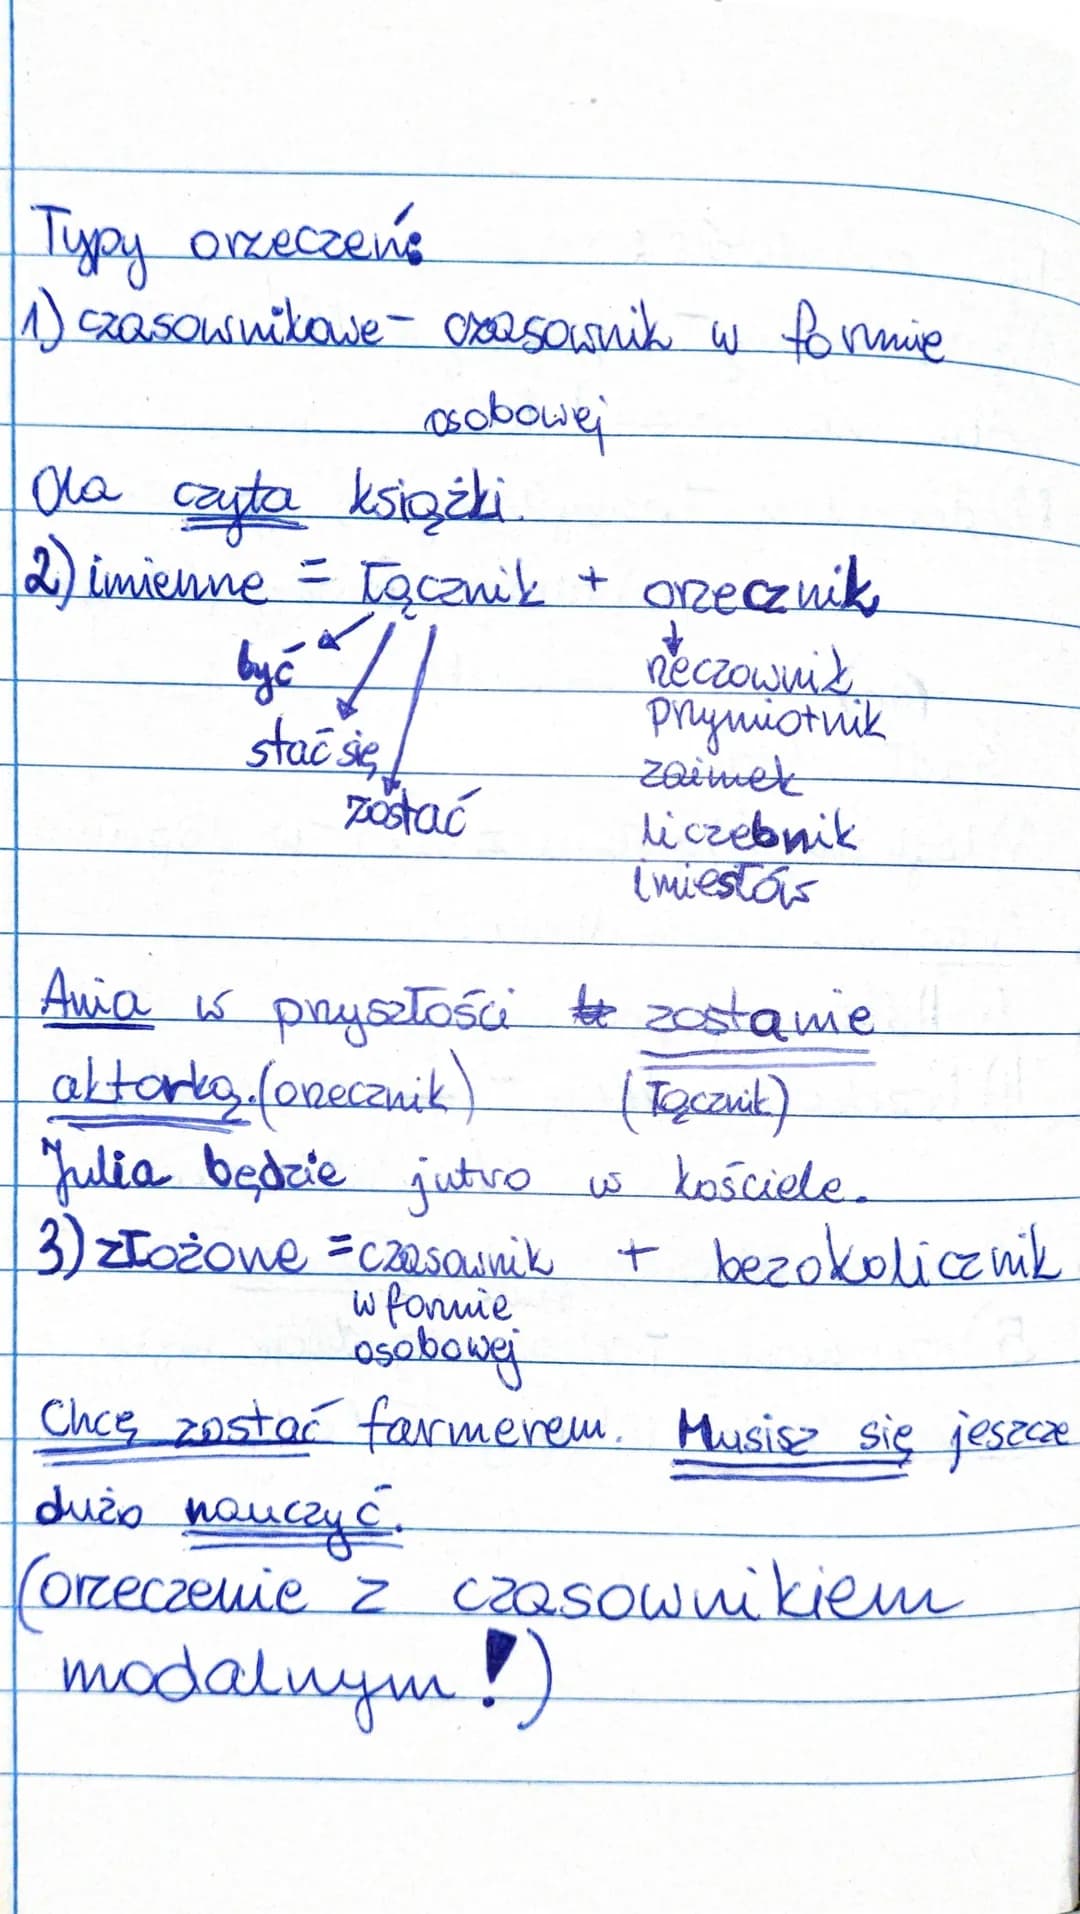 Typy orzeczeń:
1) czasownikowe - czasownik w formie
osobowej
Ola czyta książki.
2) imienne = łącznik + orzecznik
być
stać się
zostać
rzeczownik
przymiotnik
zaimek
liczebnik
imiesłów
Ania w przyszłości zostanie
aktorką. (orzecznik) (łącznik)
Julia będzie jutro w kościele.
3) złożone = czasownik + bezokolicznik
w formie
osobowej
Chcę zostać farmerem. Musisz się jeszcze
dużo nauczyć.
(orzeczenie z czasownikiem
modalnym!)